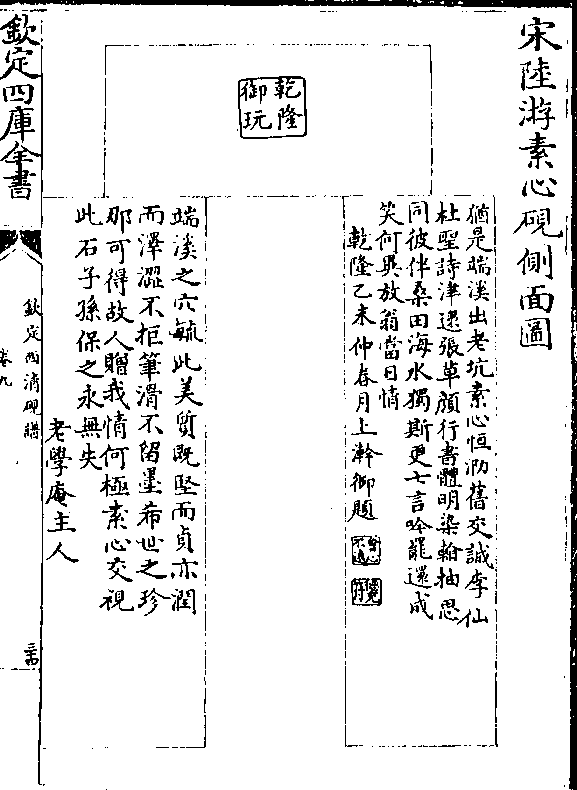 宋陸游素心硯側面圖
乾隆
御玩
猶是端溪出老坑素心恒泐舊交誠李仙
杜聖詩津逮張草顔行書體明染翰抽思
同彼伴桑田海水獨斯更七言吟罷還成
笑何異放翁當日情
乾隆乙未仲春月上澣御題
端溪之穴毓此美質既堅而貞亦潤
而澤澀不拒筆滑不留墨希世之珍
那可得故人贈我情何極素心交視
此石子孫保之永無失
老學庵主人
欽定四庫全書
欽定西清硯譜
卷九